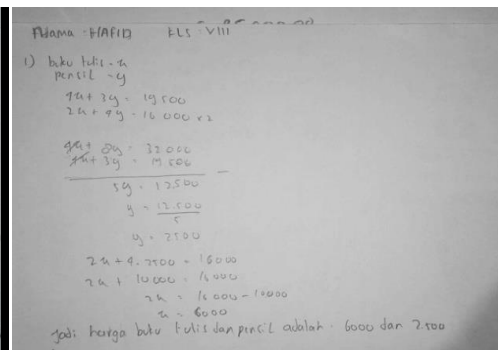 Nama : HAFID KLS : VIII
1) buku tulis = x
pensil = y
4x + 3y = 19500
2x + 4y = 16000 x2
4x + 8y = 32000
4x + 3y = 19500
5y = 12500
y = 12.500
5
y = 2500
2x + 4. 2500 = 16000
2x + 10000 = 16000
2x = 16000 - 10000
x = 6000
Jadi harga buku tulis dan pensil adalah . 6000 dan 2.500